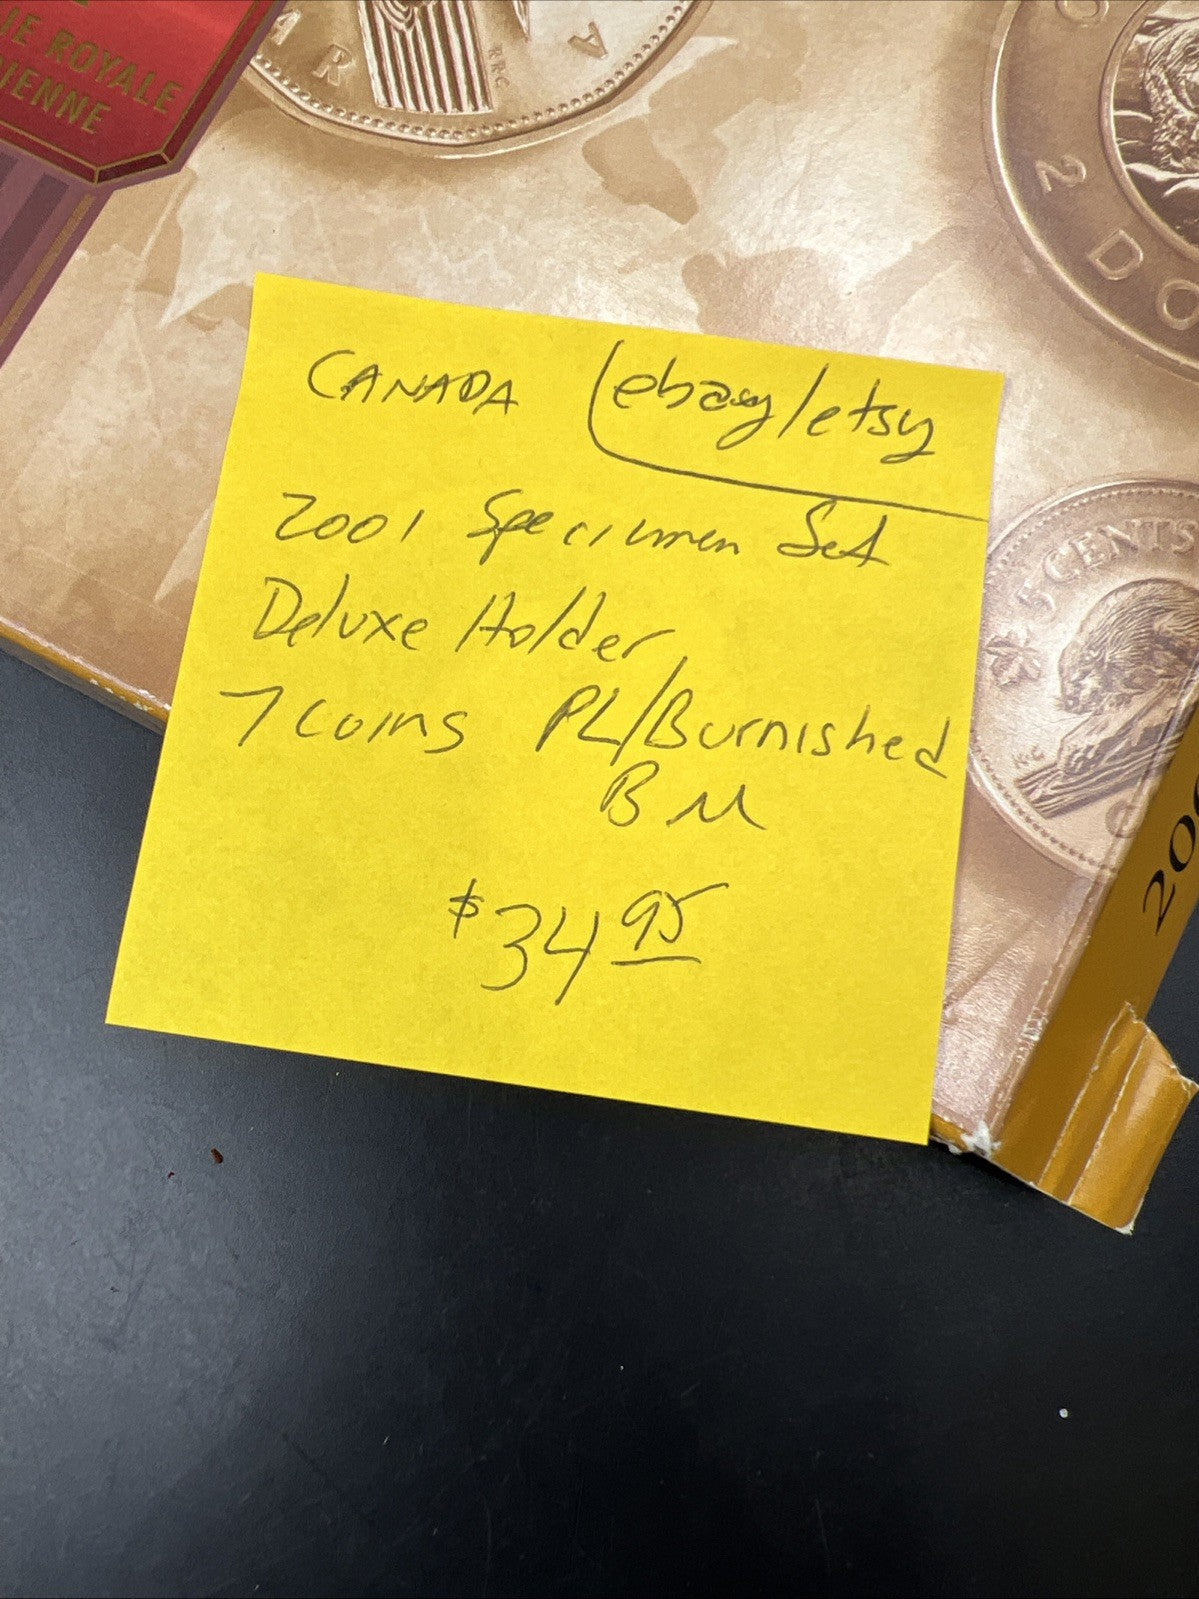 UE ROYALE
IENNE
A R
RRC
A
2 DO
5 CENTS
KG
200
CANADA ebay/etsy
2001 Specimen Set
Deluxe Holder
7 Coins PL/Burnished
BU
$34.95